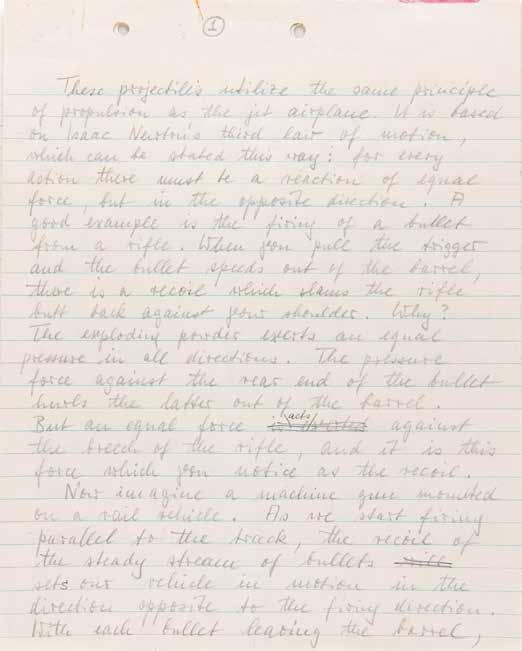 1
These projectiles utilize the same principle
of propulsion as the jet airplane. It is based
on Isaac Newton's third law of motion,
which can be stated this way: for every
action there must be a reaction of equal
force, but in the opposite direction. A
good example is the firing of a bullet
from a rifle. When you pull the trigger
and the bullet speeds out of the barrel,
there is a recoil which slams the rifle
butt back against your shoulder. Why?
The exploding powder exerts an equal
pressure in all directions. The pressure
force against the rear end of the bullet
hurls the latter out of the barrel.
But an equal force acts against
the breech of the rifle, and it is this
force which you notice as the recoil.
Now imagine a machine gun mounted
on a rail vehicle. As we start firing
parallel to the track, the recoil of
the steady stream of bullets will
sets our vehicle in motion in the
direction opposite to the firing direction.
With each bullet leaving the barrel,